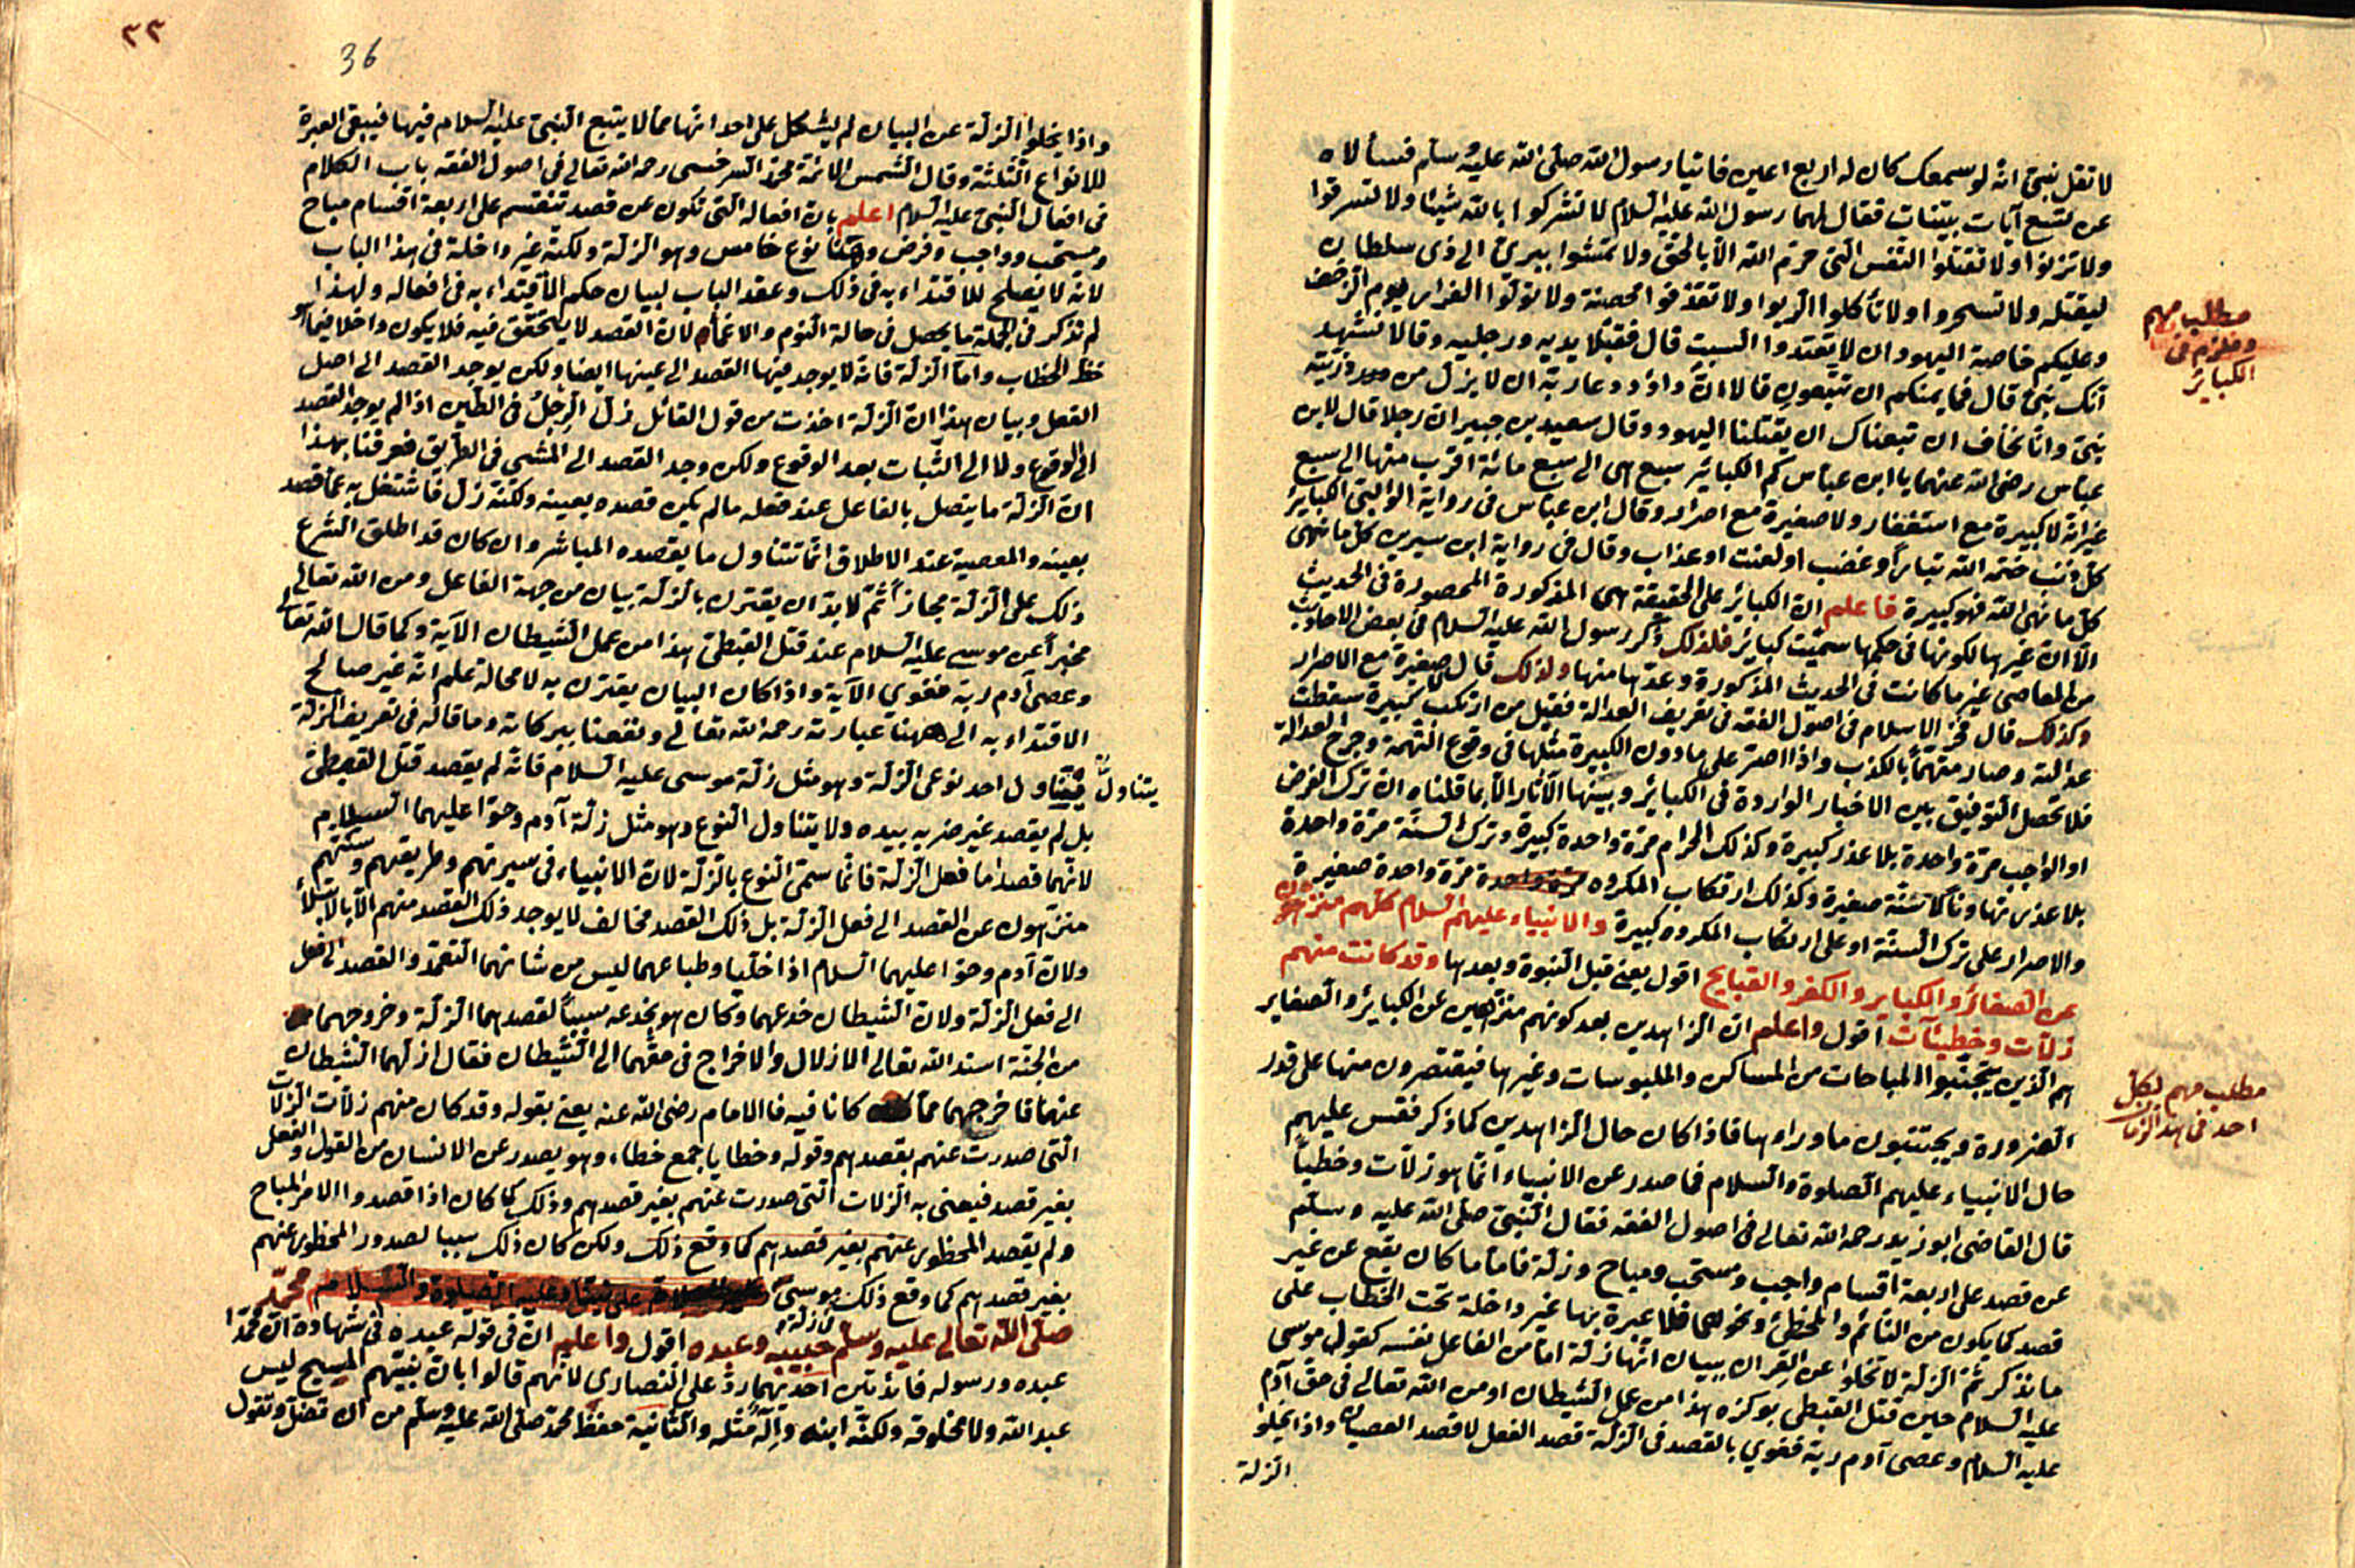 لا تقل نبيّ انّه لو سمعك كان له اربع اعين فاتيا رسول الله صلّى الله عليه وسلّم فسألاه
عن تسع آيات بيّنات فقال لهما رسول الله عليه السّلام لا تشركوا بالله شيئا ولا تسرقوا
ولا تزنوا ولا تقتلوا النّفس الّتى حرّم الله الّا بالحقّ ولا تمشوا ببرئ الى ذى سلطان
ليقتله ولا تسحروا ولا تأكلوا الرّبوا ولا تقذفوا محصنة ولا تولّوا الفرار يوم الزّحف
وعليكم خاصة اليهود ان لا تعتدوا السبت قال فقبّلا يديه ورجليه وقالا نشهد
انّك نبىّ قال فما يمنعكم ان تتّبعونى قالا انّ داؤد دعا ربّه ان لا يزل من ذرّيّته
نبىّ وانّا نخاف ان تبعناك ان يقتلنا اليهود وقال سعيد بن جبير ان رجلا قال لابن
عبّاس رضى الله عنهما يا ابن عبّاس كم الكبائر سبع هى الى سبع مائة اقرب منها الى سبع
غير انّه لا كبيرة مع استغفار ولا صغيرة مع اصرار وقال ابن عبّاس فى رواية الوالبىّ الكبائر
كلّ ذنب ختمه الله بنار او غضب او لعنت او عذاب وقال فى رواية ابن سيرين كلّ ما نهى
كلّ ما نهى الله فهو كبيرة فاعلم انّ الكبائر على الحقيقة هى المذكورة المحصورة فى الحديث
الّا انّ غيرها لكونها فى حكمها سمّيت كبائر فلذلك ذكر رسول الله عليه السّلام فى بعض الاحاديث
من المعاصى غير ما كانت فى الحديث المذكورة وعدّها منها ولذلك قال لا صغيرة مع الاصرار
وكذلك قال فخر الاسلام فى اصول الفقه فى تعريف العدالة فقيل من ارتكب كبيرة سقطت
عدالته وصار متّهماً بالكذب واذا اصرّ على ما دون الكبيرة مثلها فى وقوع التّهمة وجرح العدالة
فلا تحصل التّوفيق بين الاخبار الواردة فى الكبائر وبينها الآثار الّا بما قلناه ان ترك الفرض
او الواجب مرّة واحدة بلا عذر كبيرة وكذلك الحرام مرّة واحدة كبيرة وترك السّنّة مرّة واحدة
بلا عذر تهاونا كاسنّة صغيرة وكذلك ارتكاب المكروه مرّة واحدة صغيرة
والاصرار على ترك السّنّة او على ارتكاب المكروه كبيرة والانبياء عليهم السّلام كلّهم منزّهون
عن الصغائر والكبائر والكفر والقبايح اقول يعنى قبل النّبوة وبعدها وقد كانت منهم
زلّات وخطيئآت اقول واعلم انّ الزاهدين بعد كونهم منزّهين عن الكبائر والصغاير
هم الّذين يجتنبوا المباحات من المساكن والملبوسات وغيرها فيقتصرون منها على قدر
الضرورة ويجتنبون ما وراءها فاذا كان حال الزّاهدين كما ذكر فقس عليهم
حال الانبياء عليهم الصّلوة والسّلام فما صدر عن الانبياء انّما هو زلّات وخطيأ
قال القاضى ابو زيد رحمه الله تعالى فى اصول الفقه فقال النّبىّ صلّى الله عليه وسلّم
عن قصد على اربعة اقسام واجب ومستحب ومباح وزلّة فامّا ما كان يقع عن غير
قصد كما يكون من النّائم والمخطئ ونحوهما فلا عبرة بها غير داخلة تحت الخطاب على
ما نذكر ثمّ الزلّة لا تخلوا عن القران ببيان انّها زلّة امّا من الفاعل نفسه كقول موسى
عليه السّلام حين قتل القبطى بوكزه هذا من عمل الشّيطان او من الله تعالى فى حقّ آدم
عليه السّلام وعصى آدم ربّه فغوى بالقصد فى الزلّة قصد الفعل لا قصد العصيان واذا يخلوا
الزلة
مطلب مهم
وملزم فى
الكبائر
مطلب مهم لكلّ
احد فى هذا الزمان
٣٣
36
واذا يخلوا الزلّة عن البيان لم يشكل على احد انّها ممّا لا يتبع النّبىّ عليه السلام فيها فيبقى العبرة
للانواع الثّلثة وقال الشّمس الائمّة محمّد السّرخسى رحمه الله تعالى فى اصول الفقه باب الكلام
فى افعال النّبىّ عليه السّلام اعلم بانّ افعاله الّتى تكون عن قصد تنقسم على اربعة اقسام مباح
ومستحب وواجب وفرض وههنا نوع خامس وهو الزلّة ولكنّه غير داخلة فى هذا الباب
لانّه لا يصلح للاقتداء به فى ذلك وعقد الباب لبيان حكم الاقتداء به فى افعاله ولهذا
لم نذكر فى الجملة ما يحصل فى حالة النّوم والاغماء لانّ القصد لا يتحقّق فيه فلا يكون داخلا فيما هو
حظر الخطاب وامّا الزلّة فانّه لا يوجد فيها القصد الى عينها ايضا ولكن يوجد القصد الى اصل
الفعل وبيان هذا انّ الزلّة اخذت من قول القائل زلّ الرجل فى الطّين اذا لم يوجد القصد
الى الوقوع ولا الى الثّبات بعد الوقوع ولكن وجد القصد الى المشى فى الطّريق فعرفنا بهذا
انّ الزلّة ما يتصل بالفاعل عند فعله ما لم يكن قصده بعينه ولكنّه زلّ فاشتغل به عمّا قصد
بعينه والمعصية عند الاطلاق انّما تتناول ما يقصده المباشر وان كان قد اطلق الشّرع
ذلك على الزلّة مجازاً ثمّ لا بدّ ان يقترن بالزلّة بيان من جهة الفاعل ومن الله تعالى
مخبراً عن موسى عليه السلام عند قتل القبطىّ هذا من عمل الشّيطان الآية وكما قال الله تعالى
وعصى آدم ربّه فغوى الآية واذا كان البيان يقترن به لا محالة علم انّه غير صالح
الاقتداء به الى ههنا عبارته رحمه الله تعالى ونفعنا ببركاته وما قاله فى تعريف الزلّة
يتناول احد نوعى الزلّة وهو مثل زلّة موسى عليه السّلام فانّه لم يقصد قتل القبطىّ
يتناول
بل لم يقصد غير ضربه بيده ولا يتناول النّوع وهو مثل زلّة آدم وحوّا عليهما السّلام
لانّهما قصدا ما فعل الزلّة فانّما سمّى النّوع بالزلّة لانّ الانبياء فى سيرتهم وطريقهم وسنّتهم
منزّهون عن القصد الى فعل الزلّة بل ذلك القصد مخالف لا يوجد ذلك القصد منهم الّا بالابتلاء
ولانّ آدم وحوّا عليهما السلام اذا خلّيا وطباعهما ليس من شانهما التّعمّد والقصد الى فعل
الى فعل الزلّة ولانّ الشّيطان خدعهما وكان هو بخدعه سبباً لقصدهما الزلّة وخروجهما
من الجنّة اسند الله تعالى الازلال والاخراج فى حقّهما الى الشّيطان فقال ازلّهما الشّيطان
عنها فاخرجهما ممّا كانا فيه فا الامام رضى الله عنه يعنى بقوله وقد كان منهم زلّات الزلّات
الّتى صدرت عنهم بقصدهم وقوله وخطايا جمع خطاء وهو يصدر عن الانسان من القول والفعل
بغير قصد فيعنى به الزلّات الّتى صدرت عنهم بغير قصدهم وذلك كما كان اذا قصدوا الامر المباح
ولم يقصد المحظور عنهم بغير قصدهم كما وقع ذلك ولكن كان ذلك سببا لصدور المحظور عنهم
بغير قصدهم كما وقع ذلك موسى على نبيّنا وعليه الصّلوة والسّلام محمّد
صلّى الله تعالى عليه وسلّم حبيبه وعبده اقول واعلم انّ فى قوله عبده فى شهادة انّ محمّدا
عبده ورسوله فائدتين احديهما ردّ على النّصارى لانّهم قالوا بانّ نبيّهم المسيح ليس
عبد الله ولا مخلوقه ولكنّه ابنه واله مثله والثّانية حفظ محمّد صلّى الله عليه وسلّم من ان تضلّ وتقول